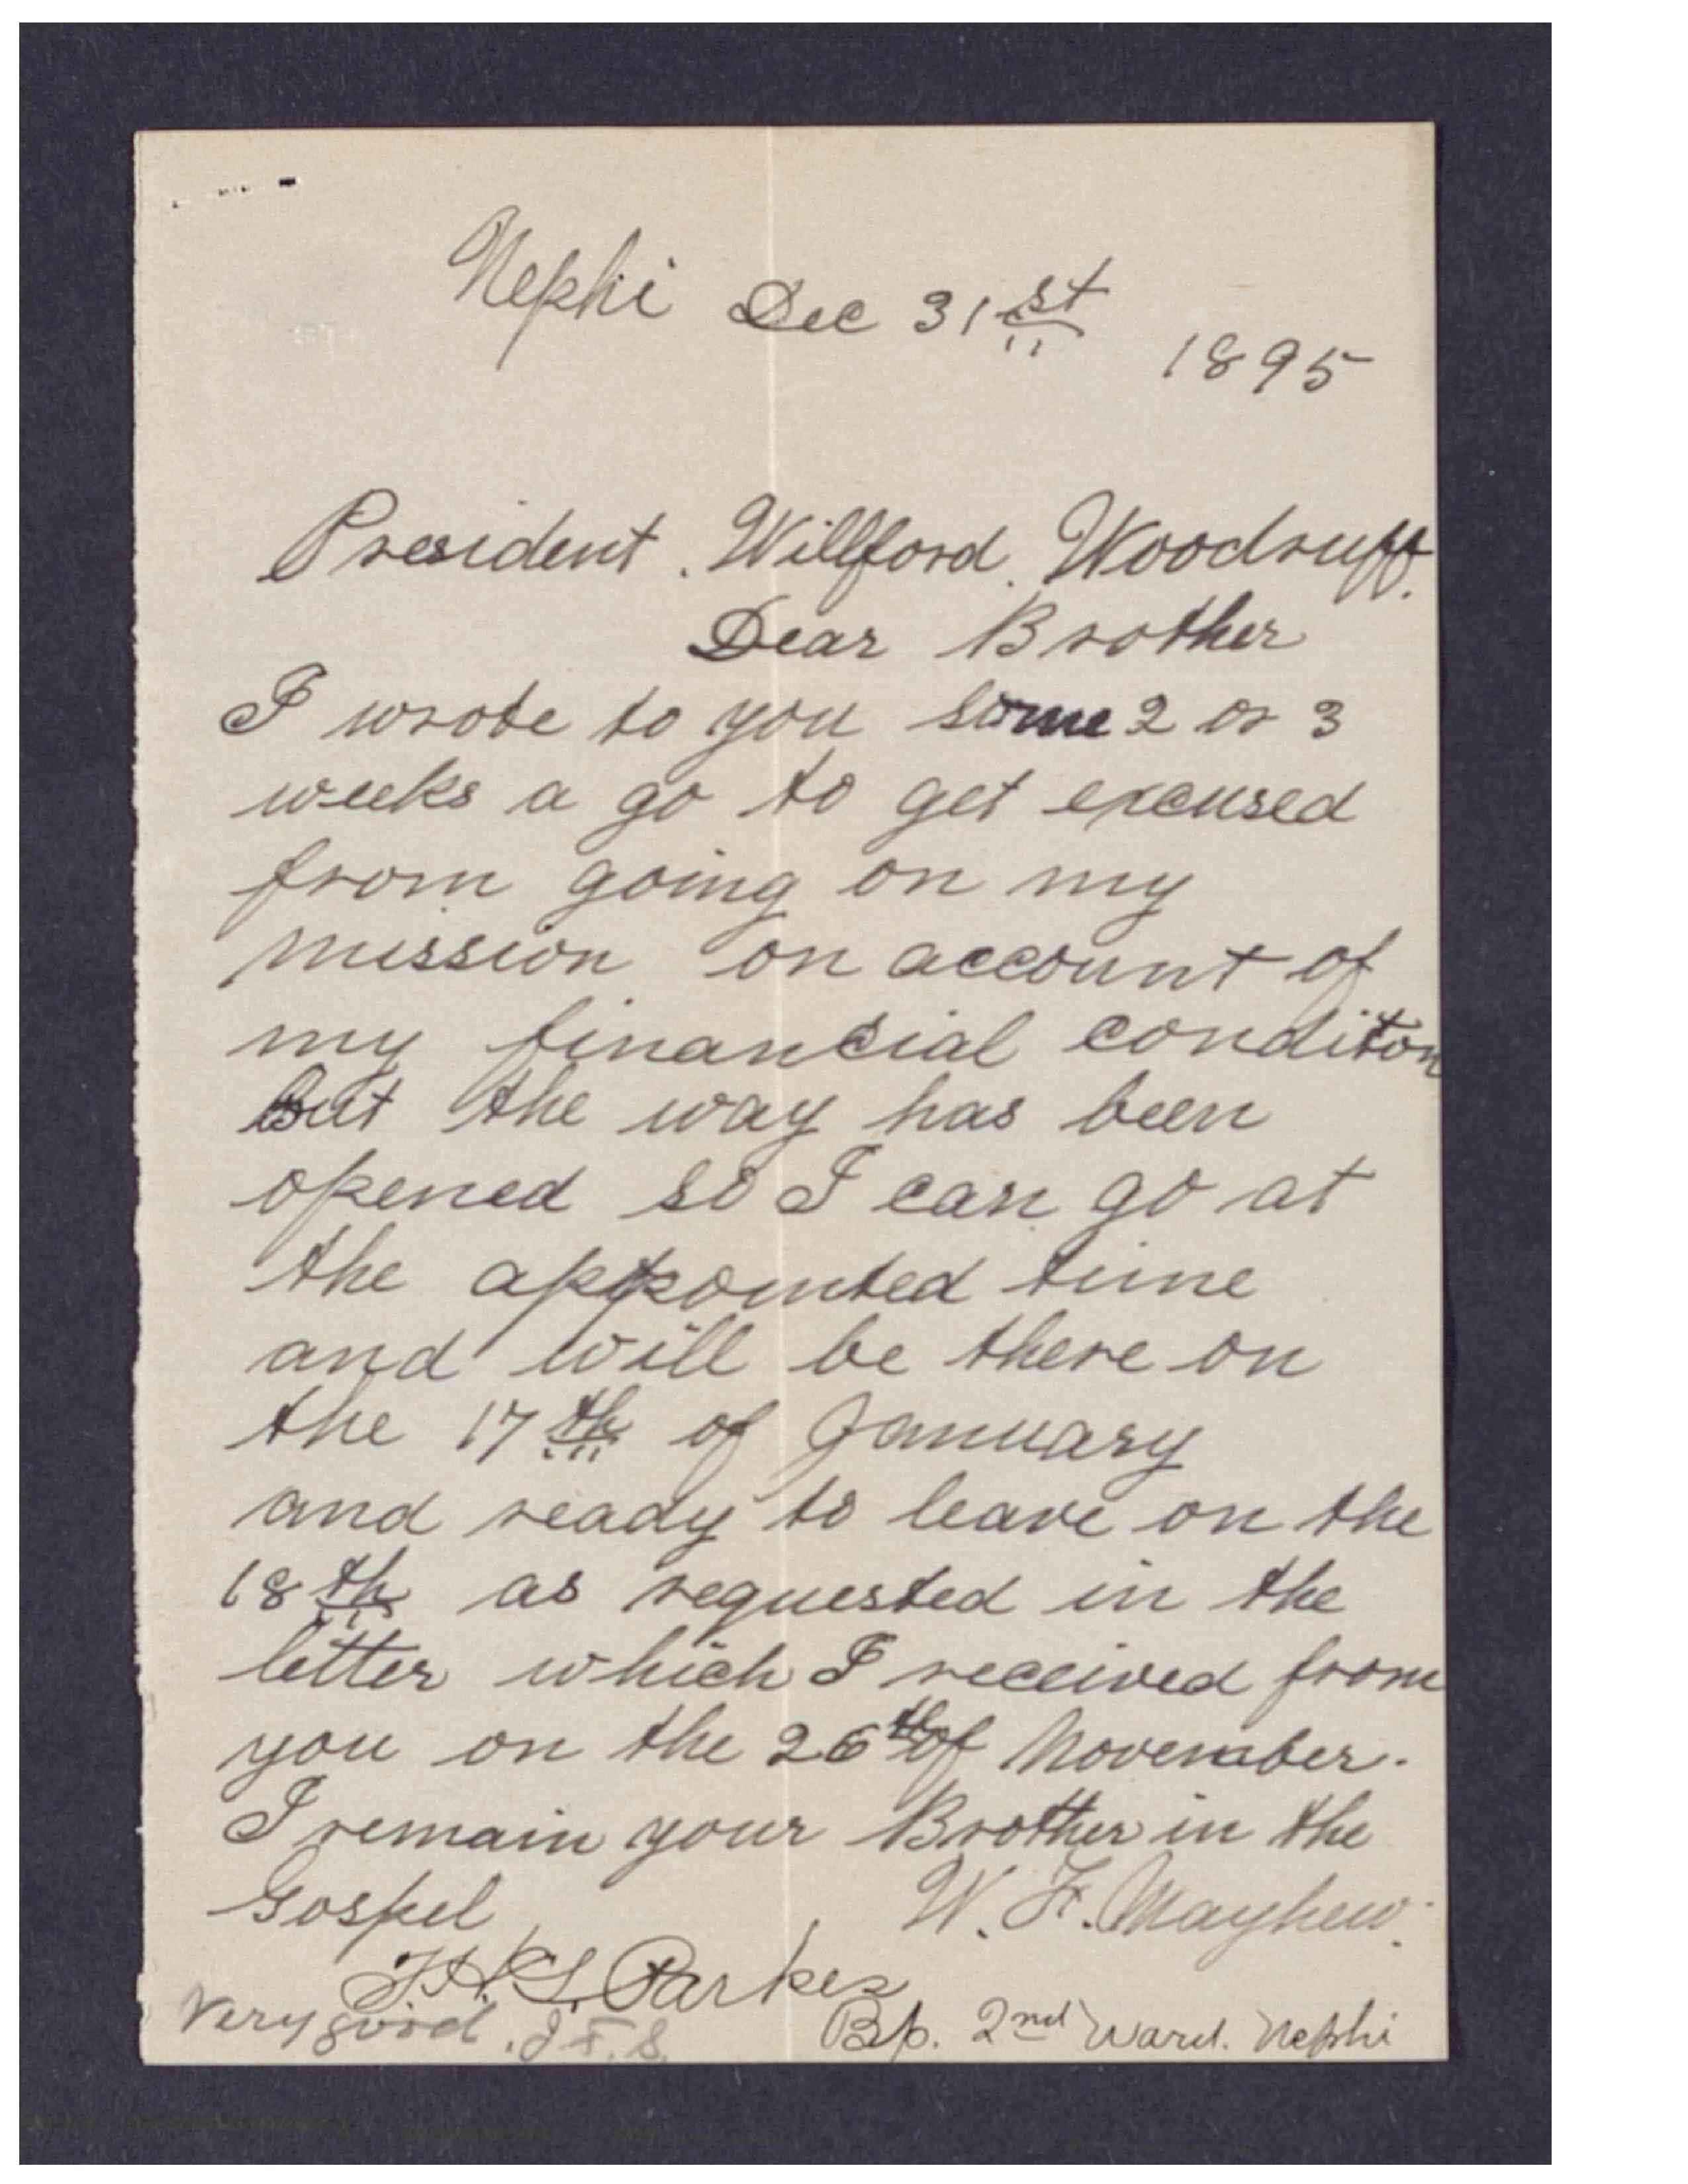 Nephi Dec 31st
1895
President. Willford. Woodruff.
Dear Brother
I wrote to you some 2 or 3
weeks a go to get excused
from going on my
mission on account of
my financial conditon
But the way has been
opened so I can go at
the appointed time
and will be there on
the 17th of January
and ready to leave on the
18th as requested in the
letter which I received from
you on the 26th of November.
I remain your Brother in the
Gospel W. F. Mayhew.
Parkes
Bp. 2nd Ward. Nephi
Very good. J. F. S.